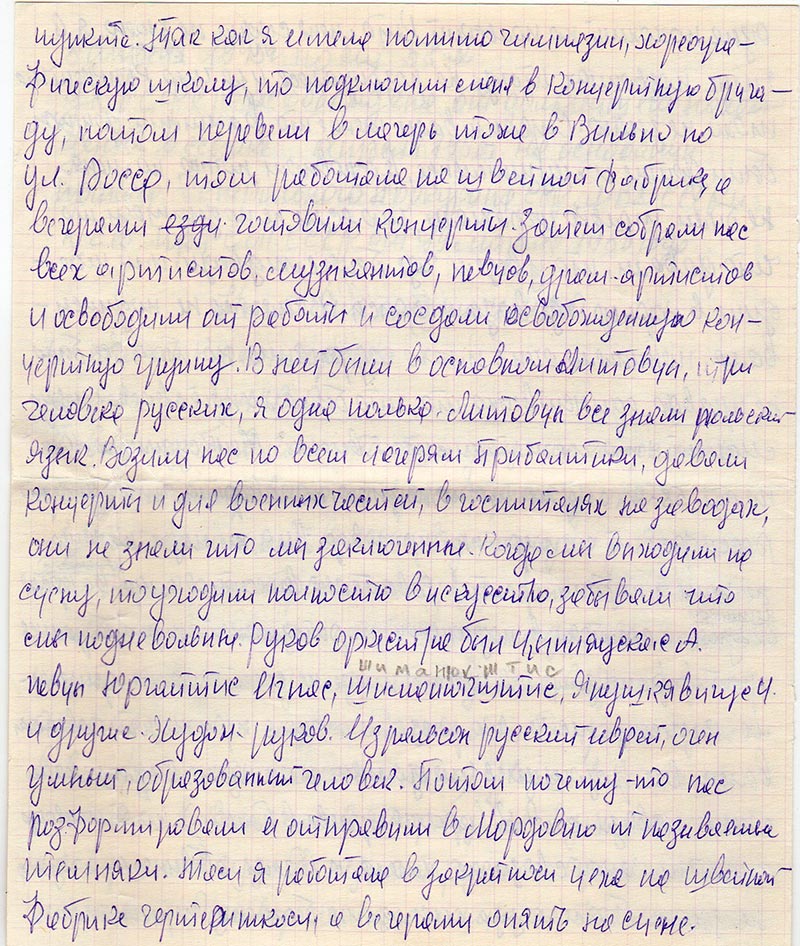 пункта. Так как я имела помимо гимназии, хореогра-
фическую школу, то подключили меня в концертную брига-
ду, потом перевели в лагерь тоже в Вильно по
ул. Росса, там работала на швейной фабрике а
вечерами езди готовили концерты. Затем собрали нас
всех артистов, музыкантов, певцов, драм-артистов
и освободили от работы и создали освобожденную кон-
цертную группу. В ней были в основном Литовцы, три
человека русских, я одна полька. Литовцы все знали польский
язык. Возили нас по всем лагерям Прибалтики, давали
концерты и для военных частей, в госпиталях на заводах,
они не знали что мы заключенные. Когда мы выходили на
сцену, то уходили полностю в искусство, забывали что
мы подневольные. Руков оркестра был А.
шиманюкштис
певцы Юргайтис Игнас,
и другие. Худож. руков. Израельсон русский еврей, очен
умный, образованный человек. Потом почему-то нас
розформировали и отправили в Мордовию т называемы
темняки. Там я работала в закрытом цеха на швейной
фабрике а вечерами опять на сцене.